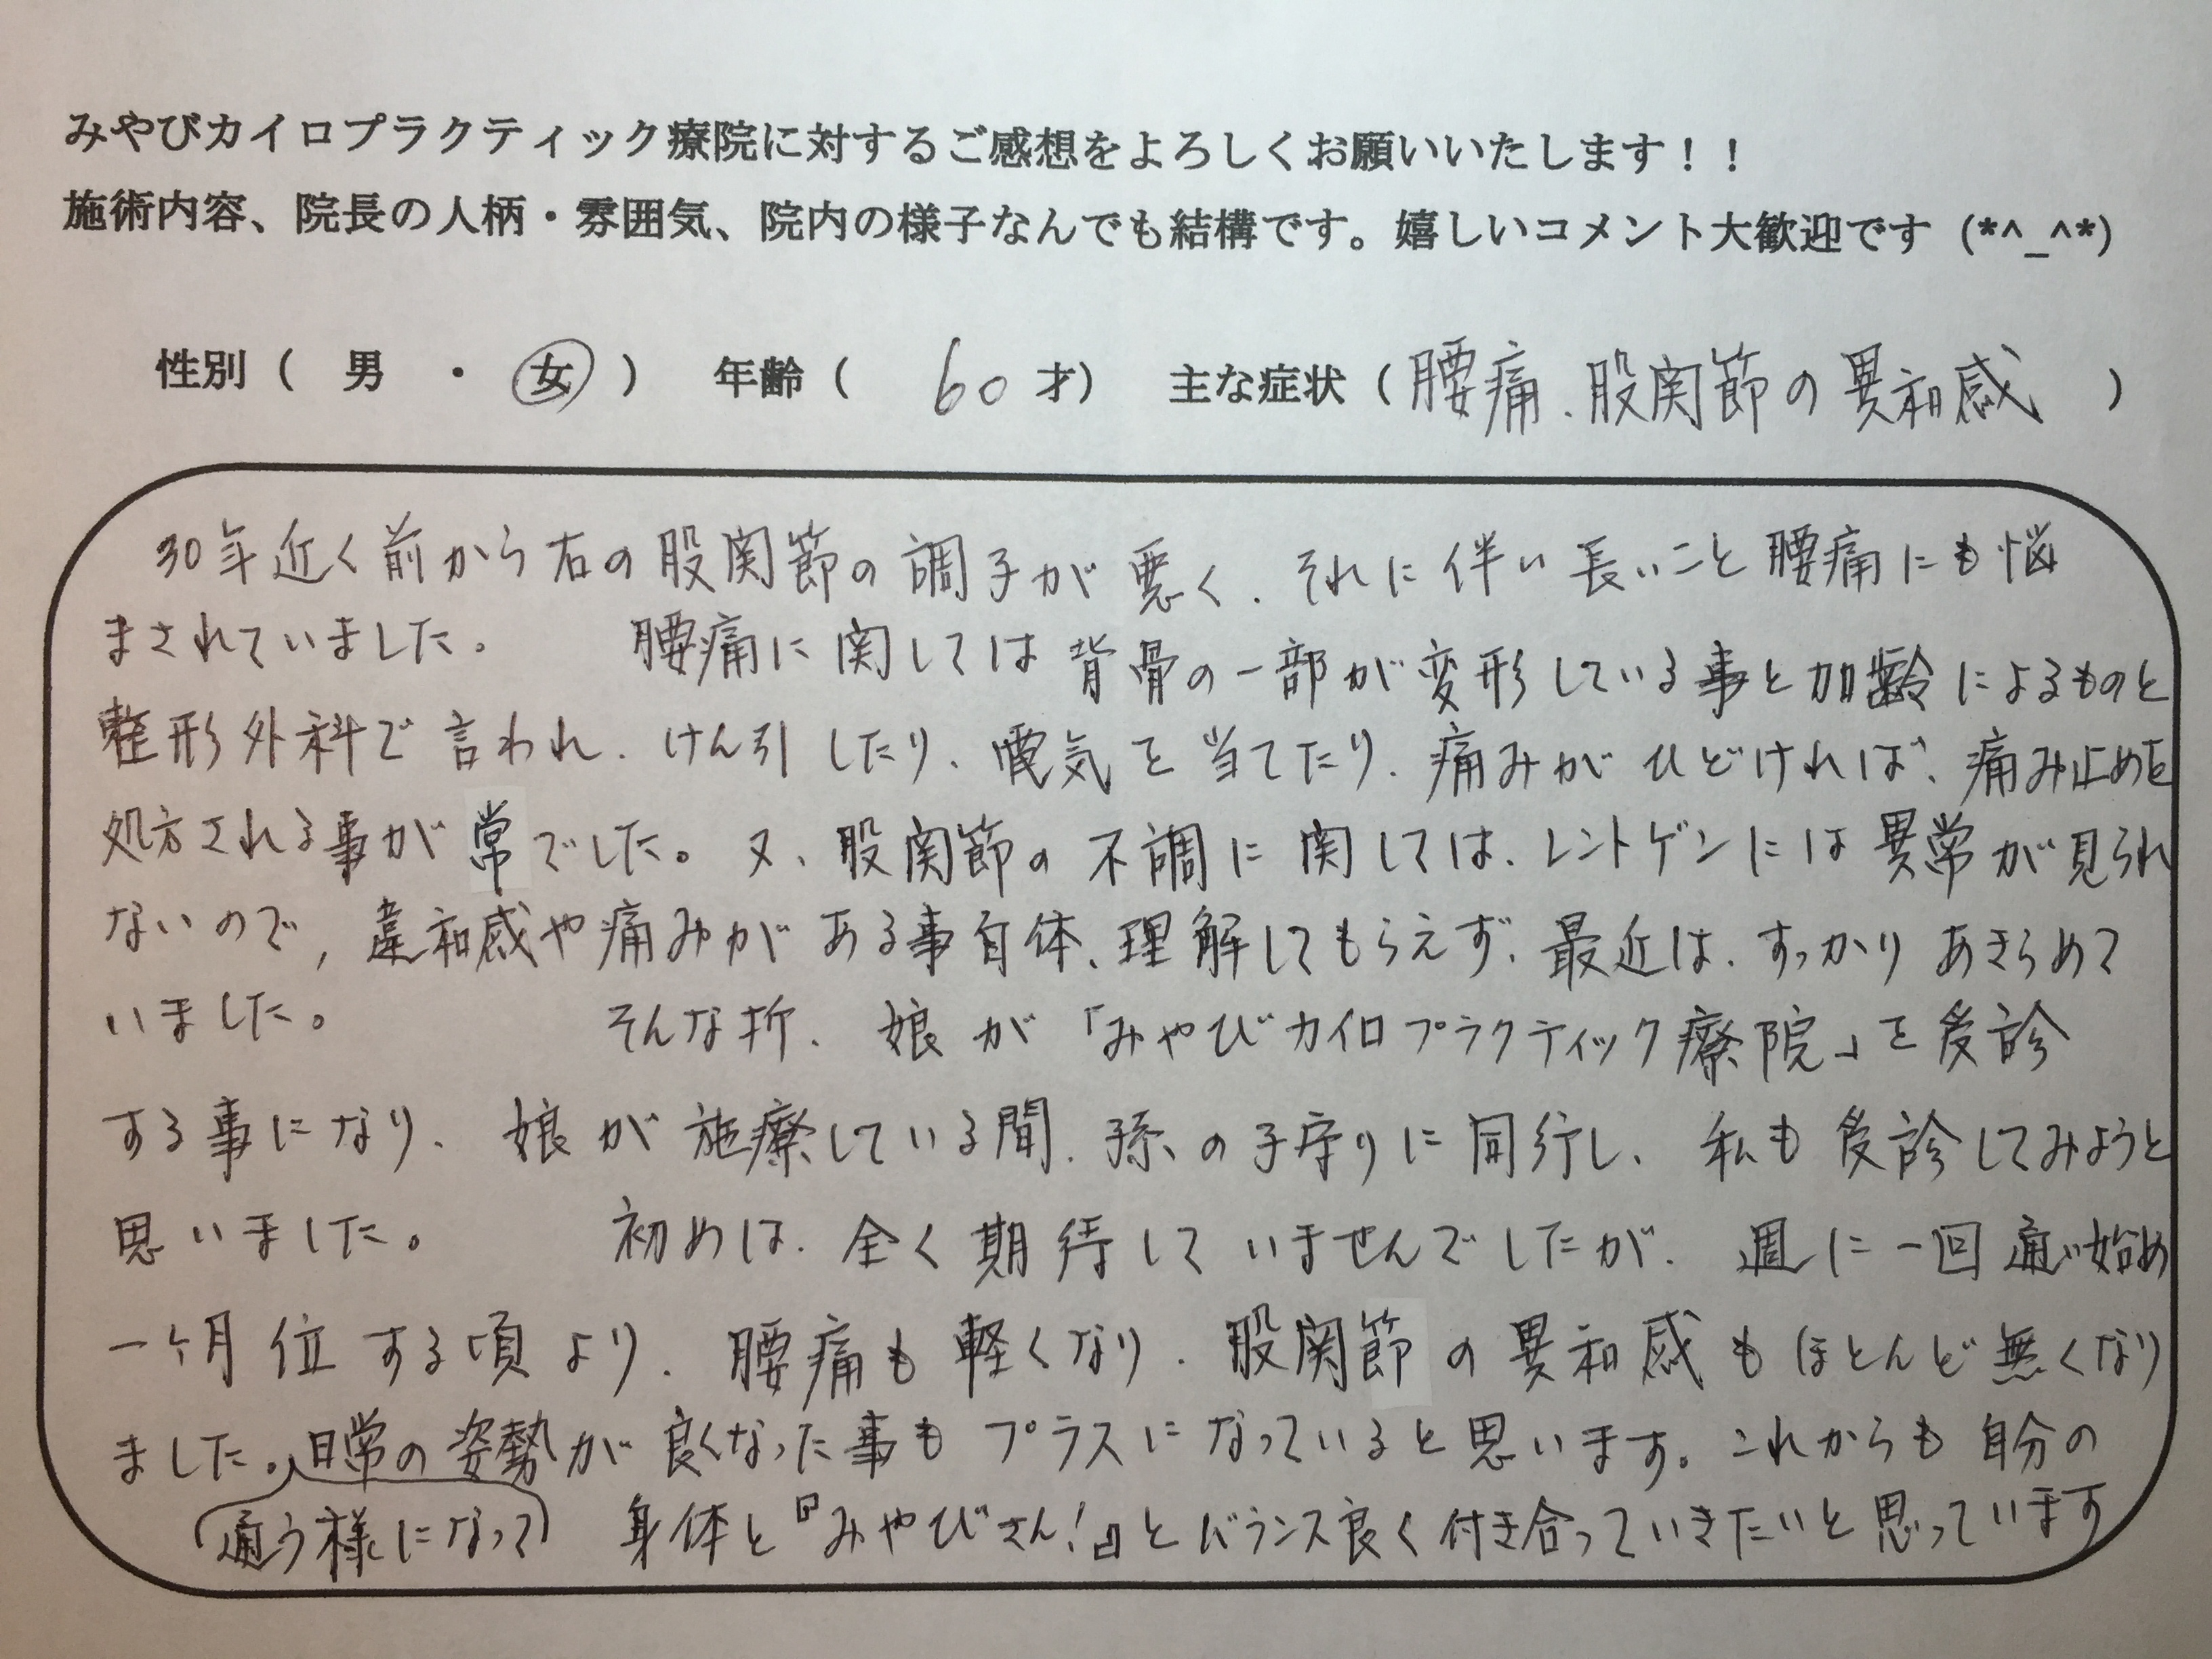 みやびカイロプラクティック療院に対するご感想をよろしくお願いいたします！！
施術内容、院長の人柄・雰囲気、院内の様子なんでも結構です。嬉しいコメント大歓迎です (*^_^*)
性別（ 男 ・ 女 ） 年齢（ 60 才） 主な症状（腰痛、股関節の異和感 ）
30年近く前から右の股関節の調子が悪く、それに伴い長いこと腰痛にも悩
まされていました。 腰痛に関しては背骨の一部が変形している事と加齢によるものと
整形外科で言われ、けん引したり、電気を当てたり、痛みがひどければ、痛み止めを
処方される事が常でした。又、股関節の不調に関しては、レントゲンには異常が見られ
ないので、違和感や痛みがある事自体、理解してもらえず、最近は、すっかりあきらめて
いました。 そんな折、娘が「みやびカイロプラクティック療院」を受診
する事になり、娘が施療している間、孫の子守りに同行し、私も受診してみようと
思いました。 初めは、全く期待していませんでしたが、週に一回通い始め
一ヶ月位する頃より、腰痛も軽くなり、股関節の異和感もほとんど無くなり
ました。日常の姿勢が良くなった事もプラスになっていると思います。これからも自分の
（通う様になって） 身体と『みやびさん!』とバランス良く付き合っていきたいと思っています